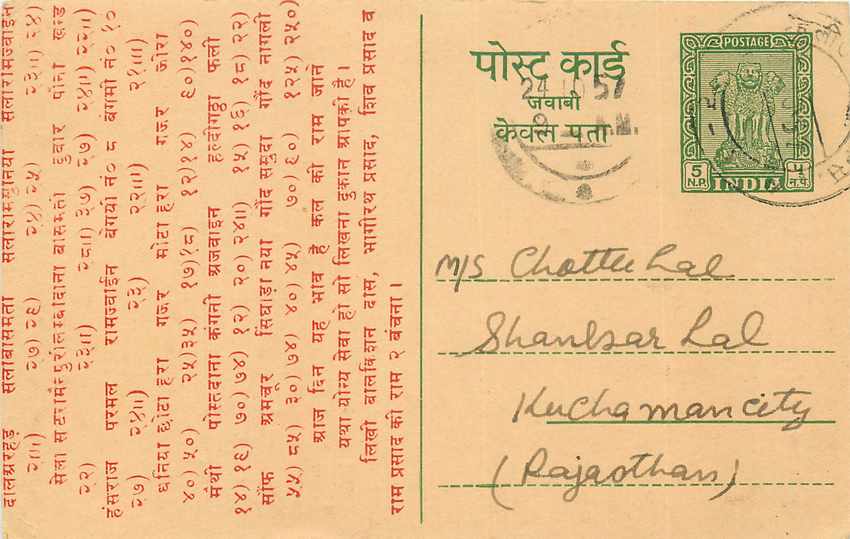 दालअरहड़ सेलाबासमती सेलारामभुनिया सेलारामज्वाईन
२१॥) २७) २६) २४) २५) २३॥) २४)
सेला सटरामनपुरी बासमती दुबार पोना खन्ड
२२) २३॥) २८॥) ३७) २७) २४॥) २२॥)
हंसराज परमल रामज्वाईन बेगमी नं० ८ बेगमी नं० १०
२७) २४॥) २३) २२॥) २१॥)
धनिया छोटा हरा गजर मोटा हरा गजर जीरा
४०) ५०) २५) ३५) १७) १८) १२) १४) ६०) १४०)
मेथी पोस्तदाना कंगनी अजवाइन हल्दीगट्ठा फली
१४) १६) ७०) ७४) १२) २०) २४॥) १५) १६) १८) २२)
सौंफ आमचूर सिंघाड़ा नया गोंद समुदा गोंद नागली
५५) ८५) ३०) ७४) ४०) ४५) ७०) ६०) १२५) २५०)
आज दिन यह भाव है कल की राम जाने
यथा योग्य सेवा हो सो लिखना दुकान आपकी है।
लिखी बालकिशन दास, भागीरथ प्रसाद, शिव प्रसाद व
राम प्रसाद की राम २ बंचना।
पोस्ट कार्ड
जवाबी
केवल पता
24 10 57
POSTAGE
5 N.P.
INDIA
५ न.पै.
M/S Chottu Lal
Shankar Lal
Kuchaman city
(Rajasthan)